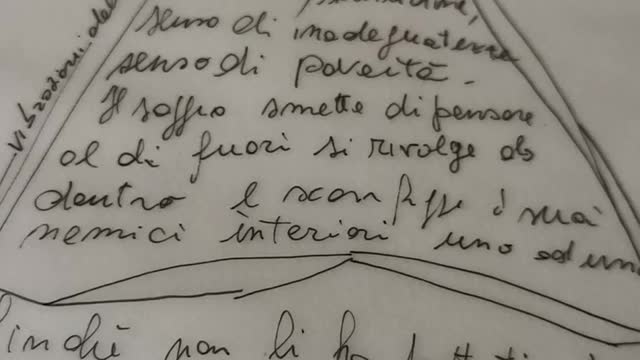 vibrazioni del
senso di inadeguatezza
senso di povertà.
Il saggio smette di pensare
al di fuori si rivolge
dentro e sconfigge i suoi
nemici interiori uno ad un
inchè non li ha